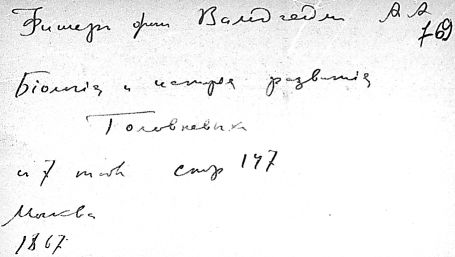 Фишеръ фон Вальдгейм А А
769
Біологія и исторія развитія
Головневыхъ
и 7 табл стр 147
Москва
1867.